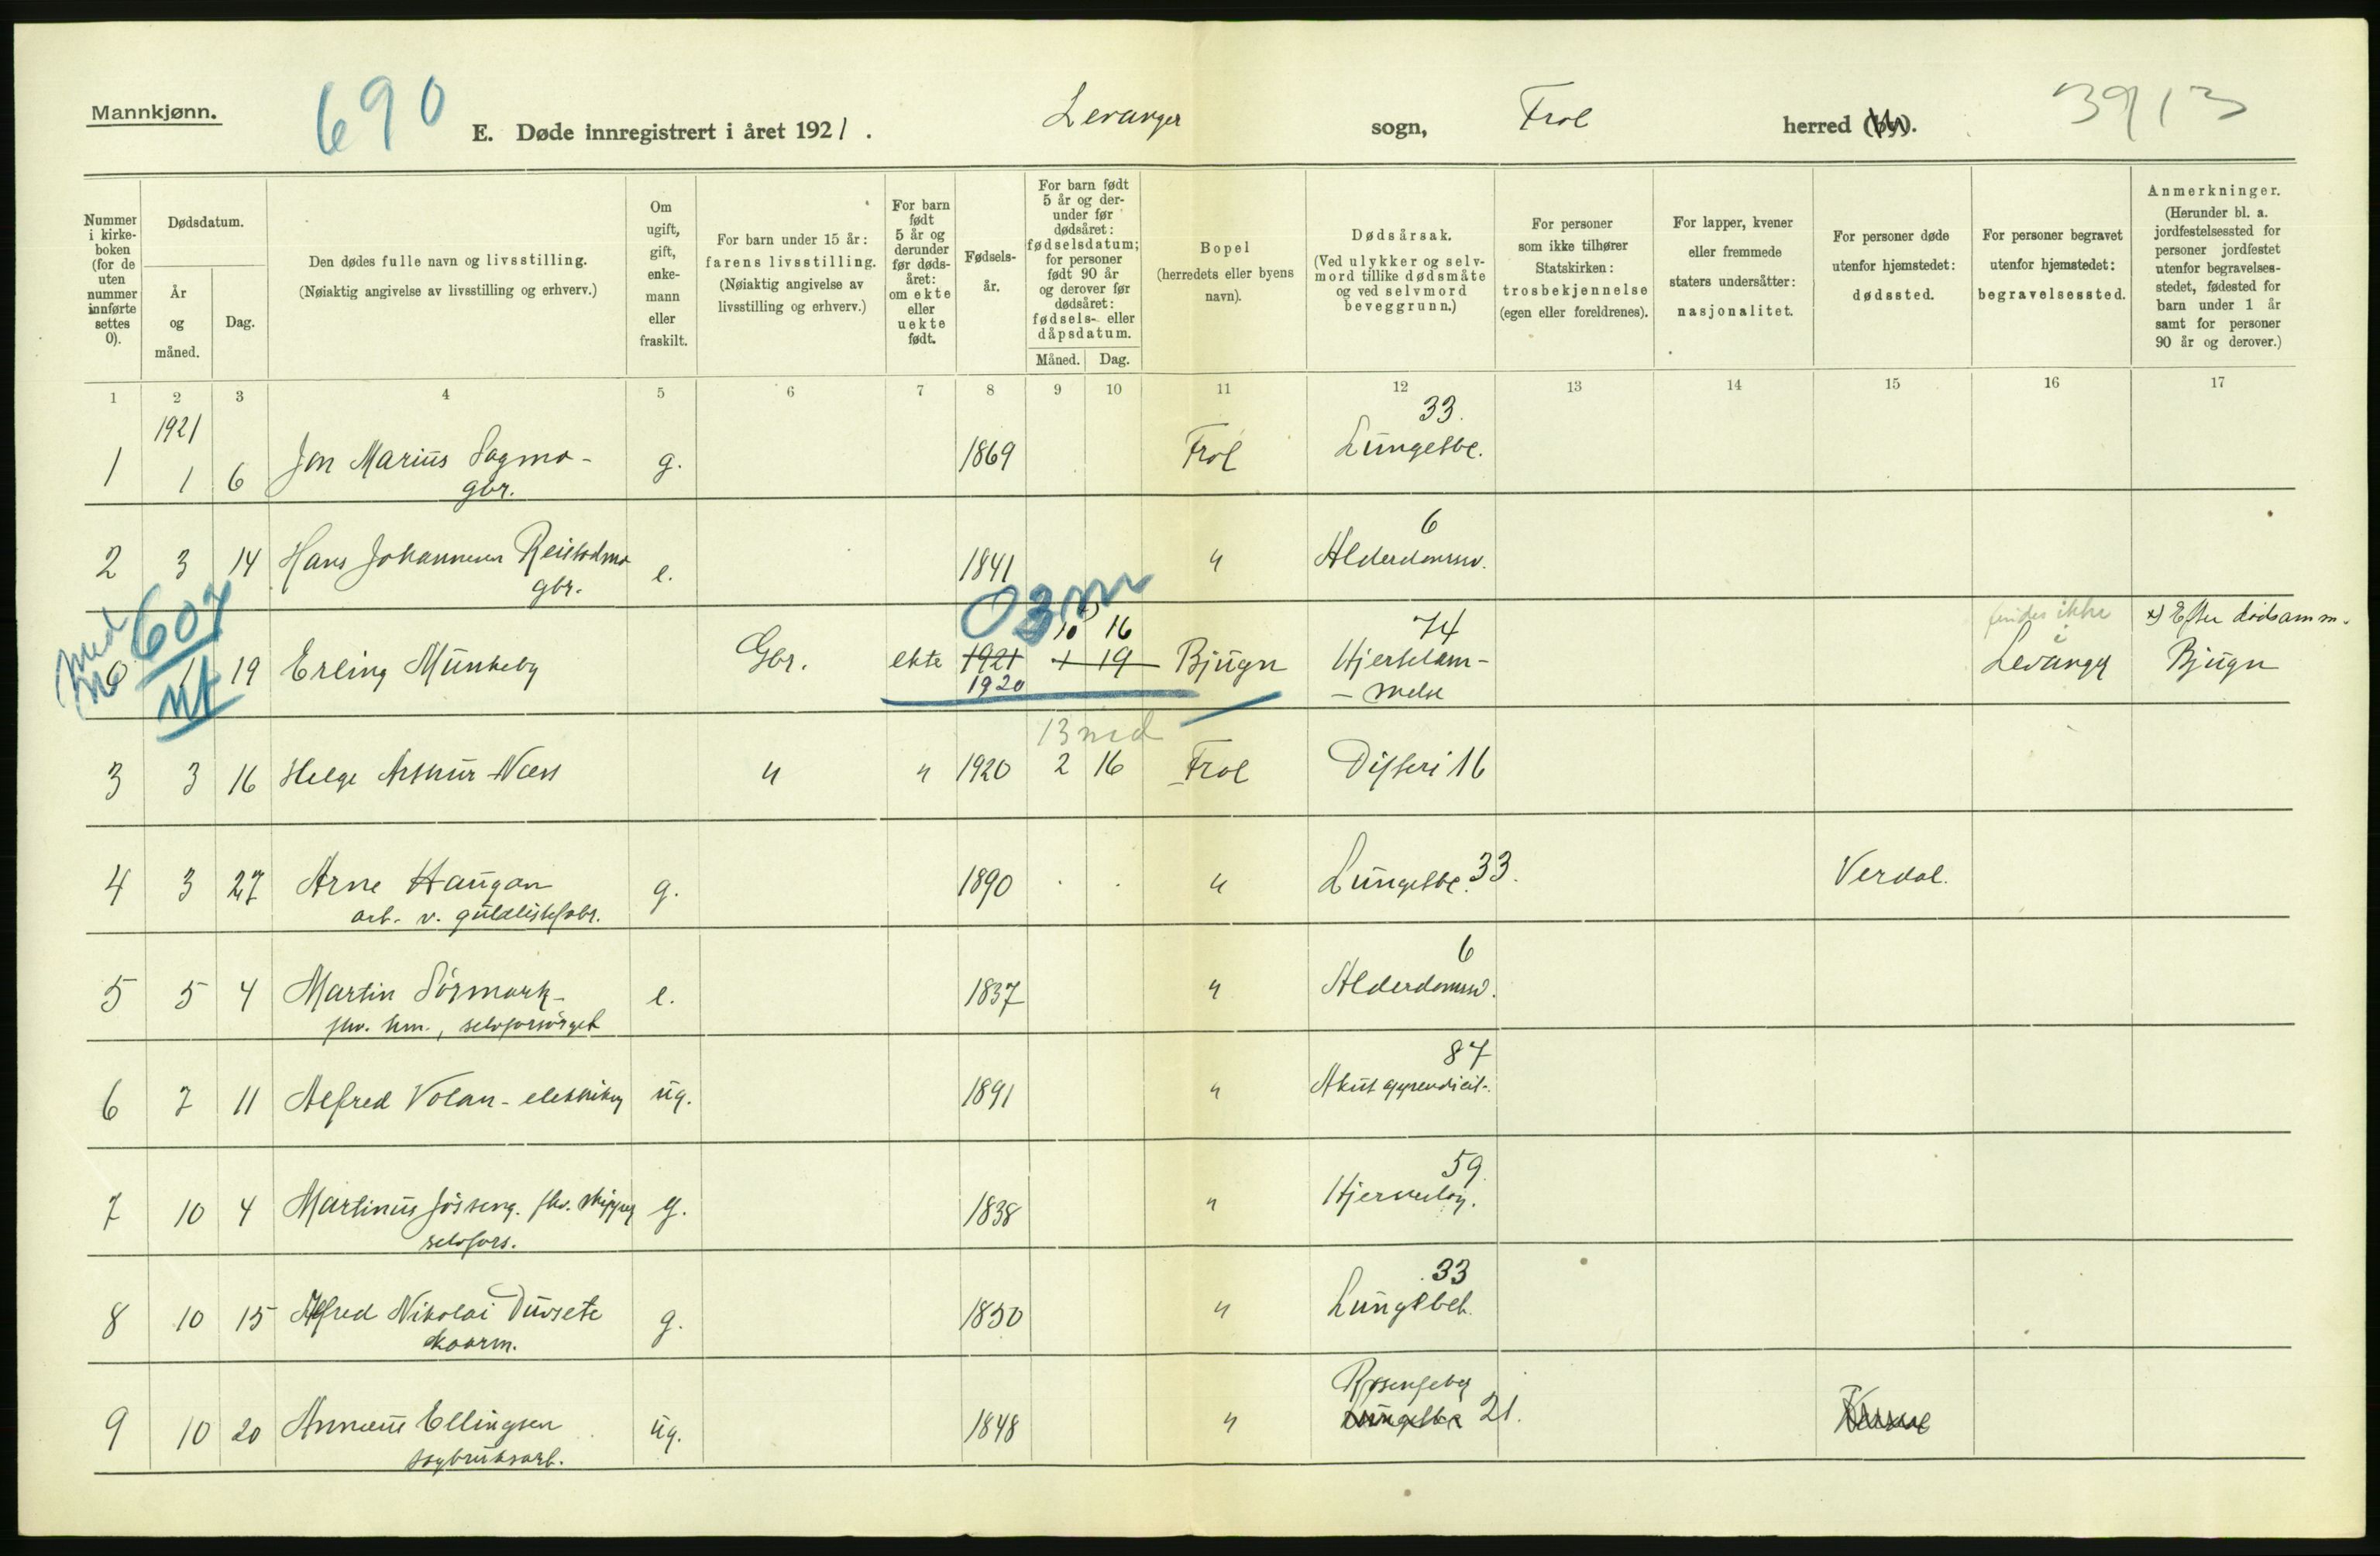 Mannkjønn.
690
E. Døde innregistrert i året 1921.
Levanger sogn,
Frol herred (by).
3913
Nummer i kirke-boken (for de uten nummer innførte settes 0).
Dødsdatum.
År og måned.
Dag.
Den dødes fulle navn og livsstilling.
(Nøiaktig angivelse av livsstilling og erhverv.)
Om ugift, gift, enke-mann eller fraskilt.
For barn under 15 år: farens livsstilling.
(Nøiaktig angivelse av livsstilling og erhverv.)
For barn født 5 år og derunder før døds-året: om ekte eller uekte født.
Fødsels-år.
For barn født 5 år og der-under før dødsåret: fødselsdatum; for personer født 90 år og derover før dødsåret: fødsels- eller dåpsdatum.
Måned. Dag.
Bopel (herredets eller byens navn).
Dødsårsak.
(Ved ulykker og selv-mord tillike dødsmåte og ved selvmord beveggrunn.)
For personer som ikke tilhører Statskirken: trosbekjennelse (egen eller foreldrenes).
For lapper, kvener eller fremmede staters undersåtter: nasjonalitet.
For personer døde utenfor hjemstedet: dødssted.
For personer begravet utenfor hjemstedet: begravelsessted.
Anmerkninger.
(Herunder bl. a. jordfestelsessted for personer jordfestet utenfor begravelses-stedet, fødested for barn under 1 år samt for personer 90 år og derover.)
1 2 3 4 5 6 7 8 9 10 11 12 13 14 15 16 17
1921 33.
1 1 6 Jon Marius Sagmo - g. 1869 Frol Lungebe.
gbr.
6
2 3 14 Hans Johannesen g. 1841 " Alderdomssv.
gbr.
607 03m
10 16 74 findes ikke x) Efter dødsanm.
0 1 19 Erling Munkeby Gbr. ekte 1921 1 19 Bjugn Hjertelam- Levanger Bjugn
nt 1920 - melse
13 md
3 3 16 Helge Arthur Næss " " 1920 2 16 Frol Difteri 16
4 3 27 Arne Haugan g. 1890 " Lungetbe. 33. Verdal.
arb. v. guldlistefabr.
6
5 5 4 Martin Sørmark - e. 1837 " Alderdomssv.
fhv. hm., selvforsørget
87
6 7 11 Alfred Volan - elektriker ug. 1891 " Akut appendicit.
59.
7 10 4 Martinus Jøsseng. fhv. skipper g. 1838 "
selvfors.
33
8 10 15 Alfred Nikolai g. 1850 "
9 10 20 Annæus Ellingsen ug. 1848 " Rosenfeber 21.
sagbruksarb.